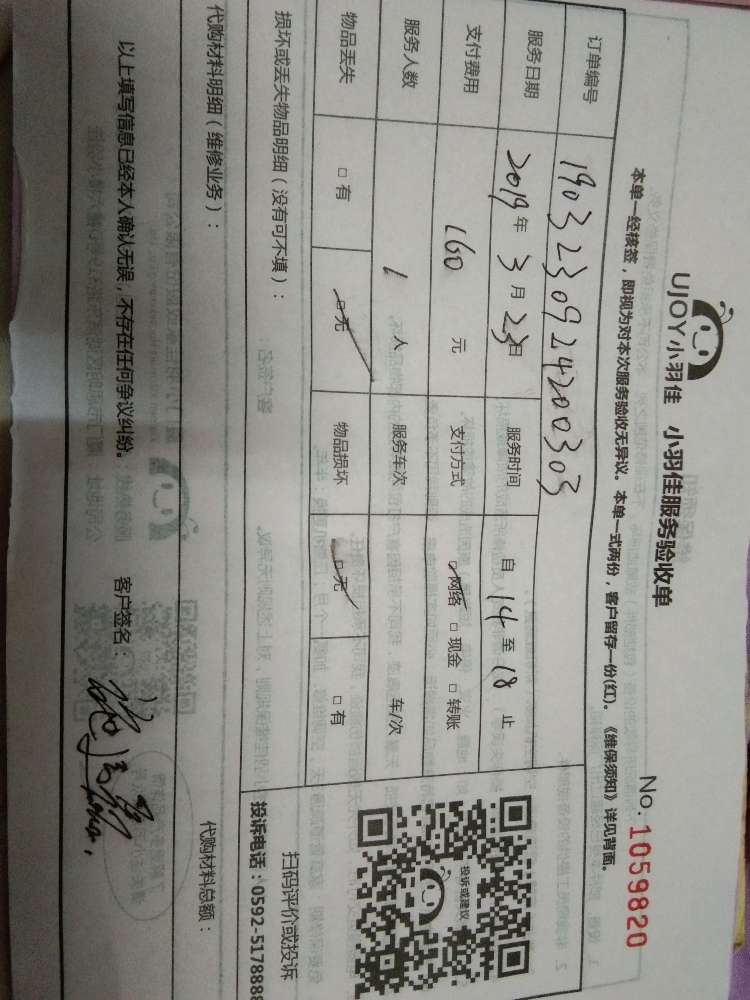 UJOY小羽佳 小羽佳服务验收单
No. 1059820
本单一经核签，即视为对本次服务验收无异议。本单一式两份，客户留存一份(红)。《维保须知》详见背面。
订单编号 1903230924200303
服务日期 2019年3月23日 服务时间 自14至18止
支付费用 160元 支付方式 □网络 □现金 □转账
服务人数 1人 服务车次 车/次
物品丢失 □有 □无 物品损坏 □无 □有
损坏或丢失物品明细（没有可不填）：
投诉或建议
扫码评价或投诉
投诉电话：0592-5178888
代购材料明细（维修业务）： 代购材料总额：
以上填写信息已经本人确认无误，不存在任何争议纠纷。 客户签名：